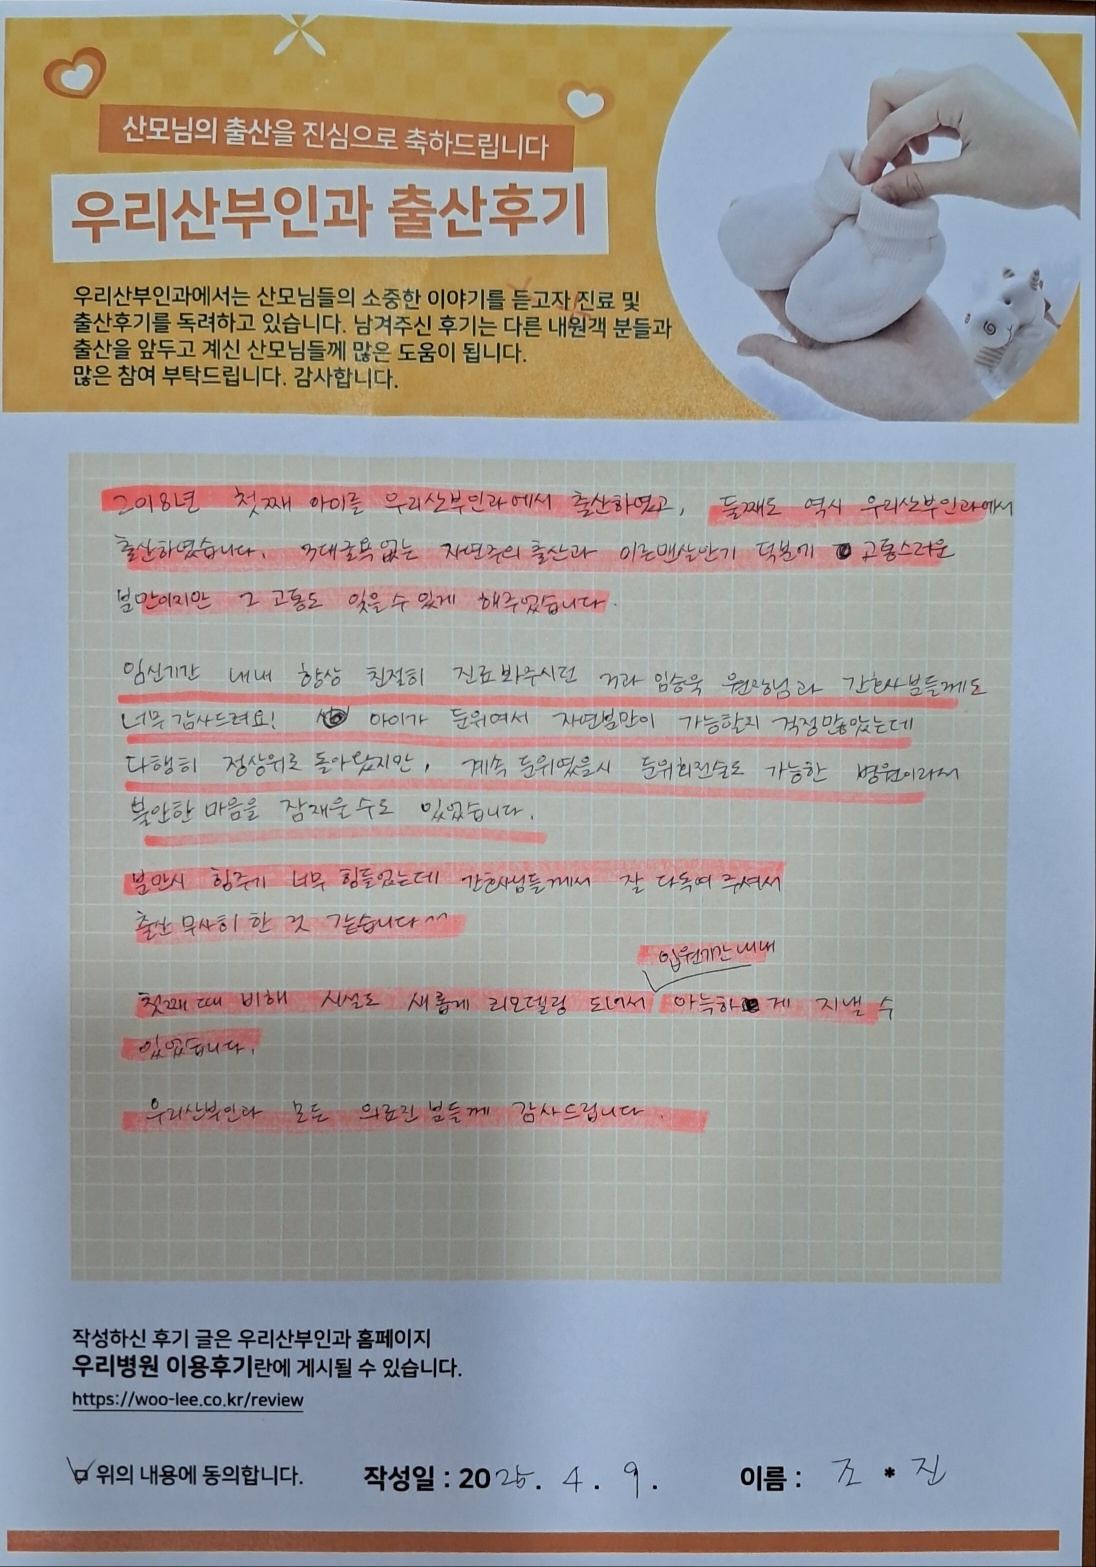 산모님의 출산을 진심으로 축하드립니다
우리산부인과 출산후기
우리산부인과에서는 산모님들의 소중한 이야기를 듣고자 진료 및
출산후기를 독려하고 있습니다. 남겨주신 후기는 다른 내원객 분들과
출산을 앞두고 계신 산모님들께 많은 도움이 됩니다.
많은 참여 부탁드립니다. 감사합니다.
2018년 첫째 아이를 우리산부인과에서 출산하였고, 둘째도 역시 우리산부인과에서
출산하였습니다. 3대굴욕없는 자연주의 출산과 이른맨살안기 덕분에 고통스러운
분만이지만 그 고통도 잊을 수 있게 해주었습니다.
임신기간 내내 항상 친절히 진료봐주시던 임승욱 원장님과 간호사분들께도
너무 감사드려요! 아이가 둔위여서 자연분만이 가능할지 걱정많았는데
다행히 정상위로 돌아왔지만, 계속 둔위였을시 둔위회전술도 가능한 병원이라서
불안한 마음을 잠재울 수도 있었습니다.
분만시 힘주기 너무 힘들었는데 간호사님들께서 잘 다독여 주셔서
출산 무사히 한 것 같습니다^^
입원기간내내
첫째 때 비해 시설도 새롭게 리모델링 되어서 아늑하게 지낼 수
있었습니다.
우리산부인과 모든 의료진분들께 감사드립니다.
작성하신 후기 글은 우리산부인과 홈페이지
우리병원 이용후기란에 게시될 수 있습니다.
https://woo-lee.co.kr/review
위의 내용에 동의합니다. 작성일 : 2025. 4. 9. 이름 : 조 * 진